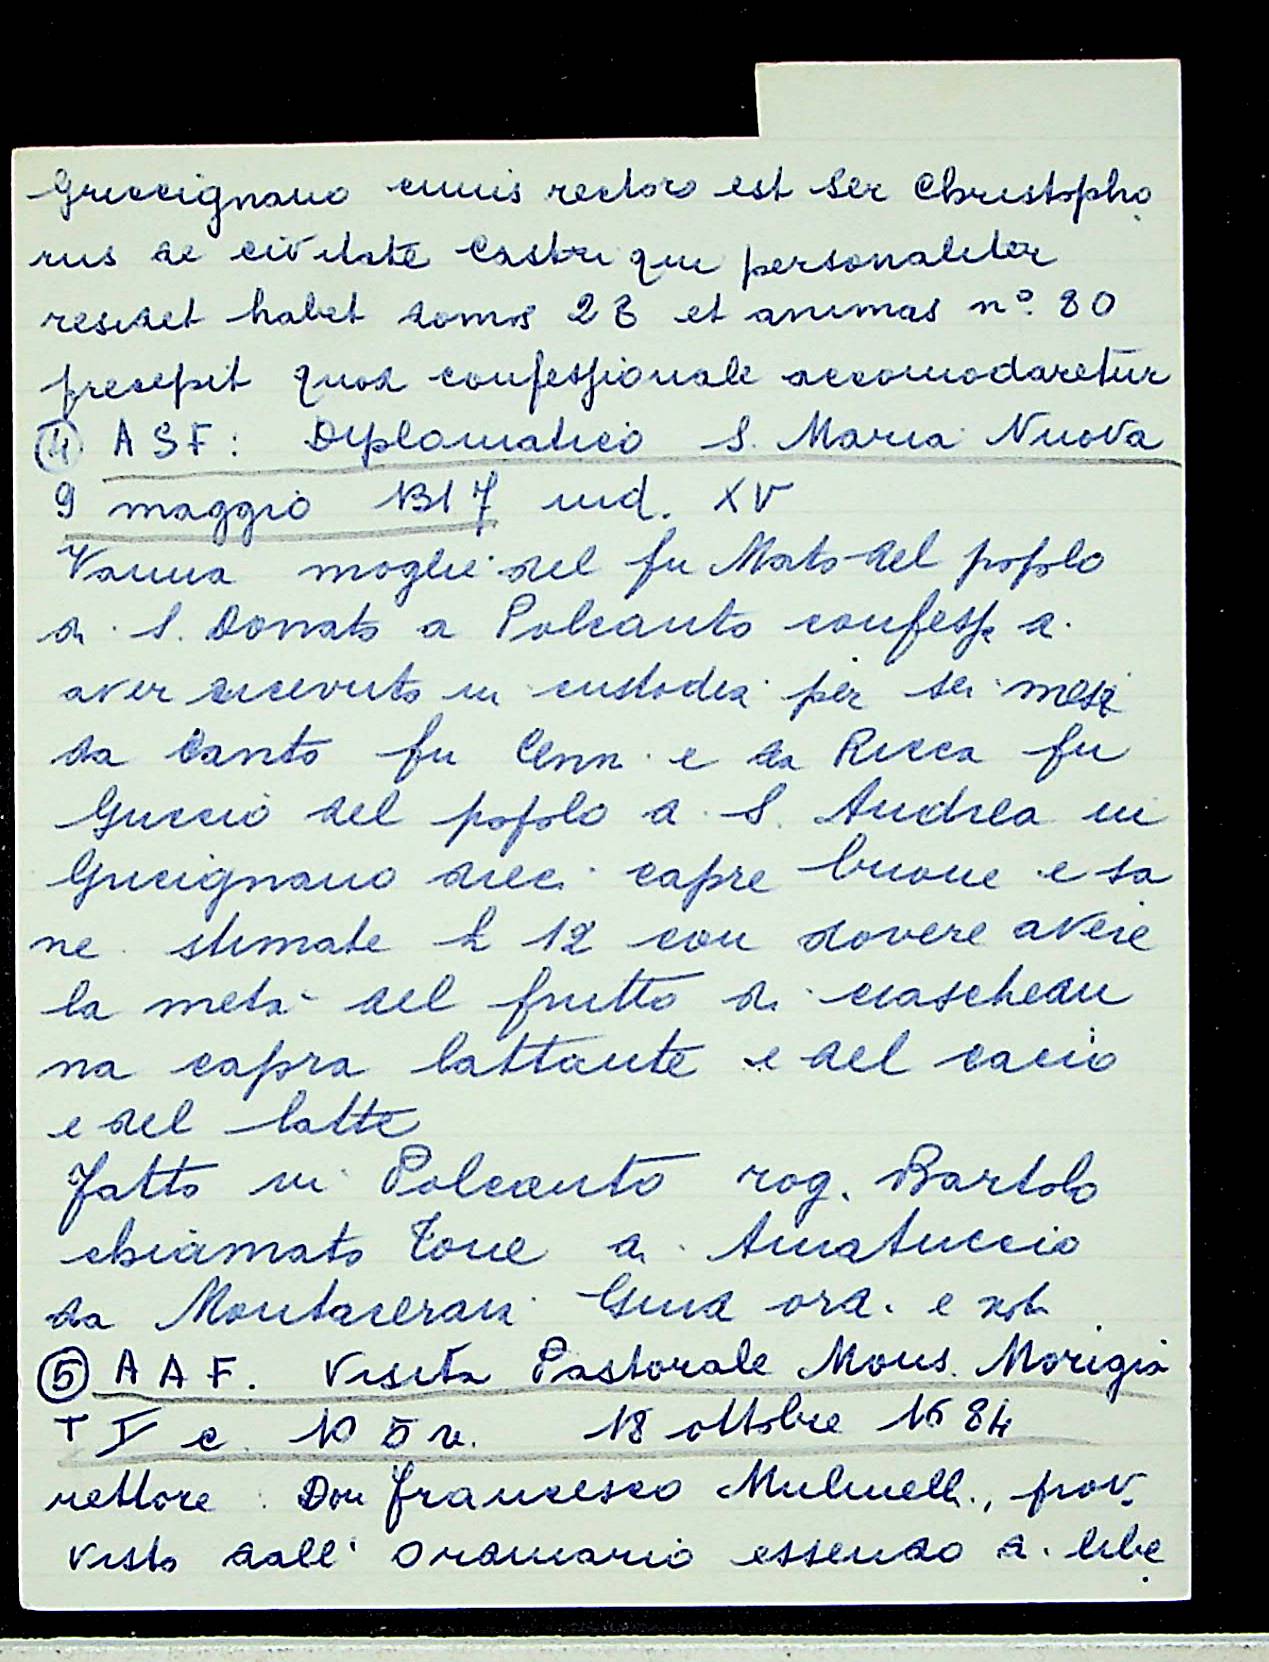 Griccignano cuius rector est Ser Christopho
rus de civitate Castri qui personaliter
residet habet domos 28 et animas n° 80
precepit quod confessionale accomodaretur
④ ASF: Diplomatico S. Maria Nuova
9 maggio 1317 ind. XV
Vanna moglie del fu Mato del popolo
di S. Donato a Polcanto confessa di
aver ricevuto in custodia per sei mesi
da Santo fu Cenni e da Ricca fu
Guccio del popolo di S. Andrea in
Gricignano dieci capre buone e sa
ne stimate £ 12 con dovere avere
la metà del frutto di ciaschedu
na capra lattante e del cacio
e del latte
Fatto in Polcanto rog. Bartolo
chiamato Tone di Amatuccio
da Montacerari Giud ord. e not
⑤ AAF. Visita Pastorale Mons. Morigia
T I c. 105 v. 18 ottobre 1684
rettore: Don Francesco Mulinelli, prov
visto dall' Ordinario essendo di libe